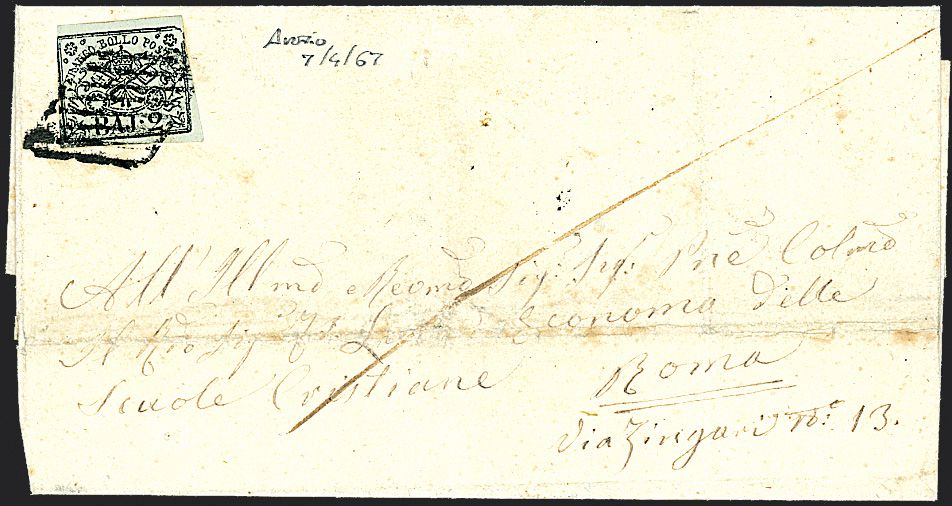 FRANCO BOLLO POSTALE
BAJ. 2
7/4/67
All' Illmo e Revmo Sigr. Sigr. Prne Colmo
Il Rdo Sigr Economo delle
Scuole Cristiane
Roma
Via Zingari No. 13.